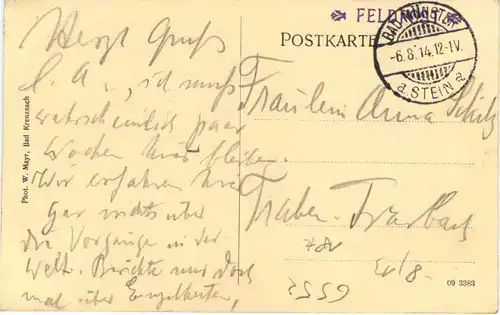 Herzl. Gruß
L. A., ich muß
wahrscheinlich paar
Wochen hier bleiben.
Wir erfahren hier
gar nichts über
die Vorgänge in der
Welt. Berichte mir doch
mal über Einzelheiten,
Phot. W. Mayr, Bad Kreuznach
FELDPOST
POSTKARTE
BAD MÜNSTER
-6.8.14.12-1V.
a. STEIN a.
Fräulein Anna Schütz
Traben-Trarbach
09 3383
6555